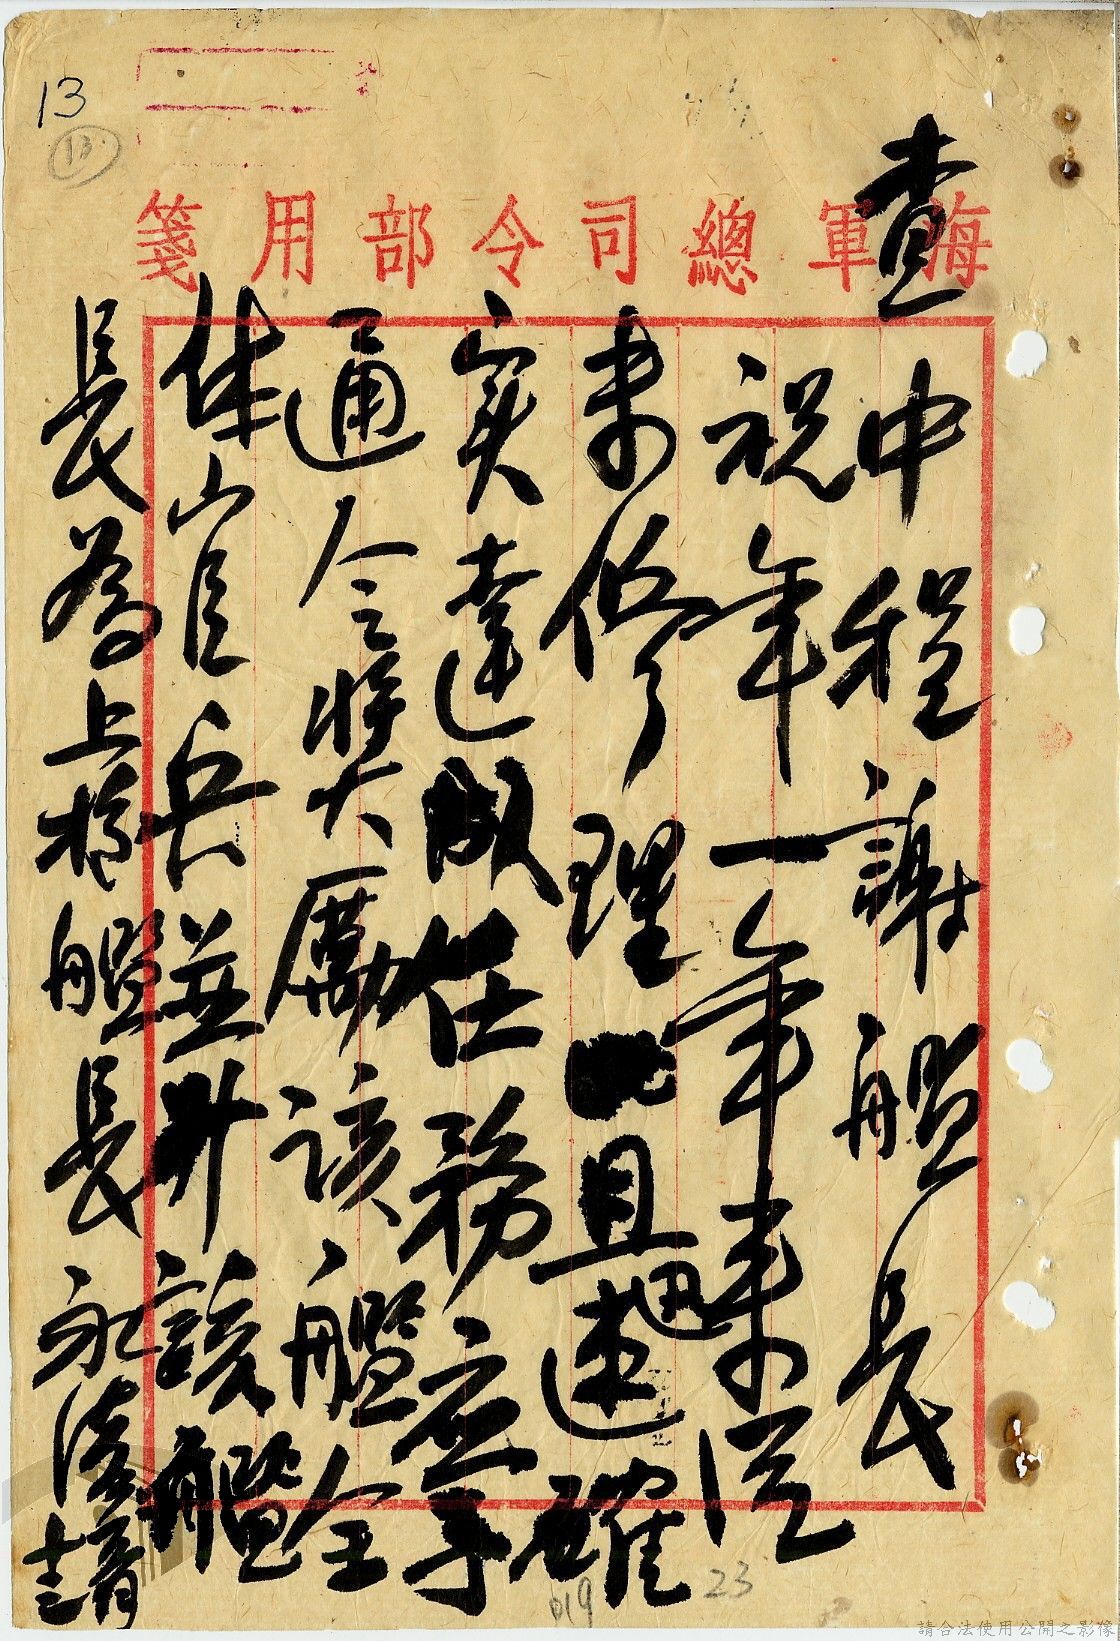 13
13
海軍總司令部用箋
查中程謝艦長
祝年一年來從
未修理且迅速確
实達成任務应予
通令獎勵該艦全
体官兵並升該艦
長為上校艦長
永 請
23
019
請合法使用公開之影像